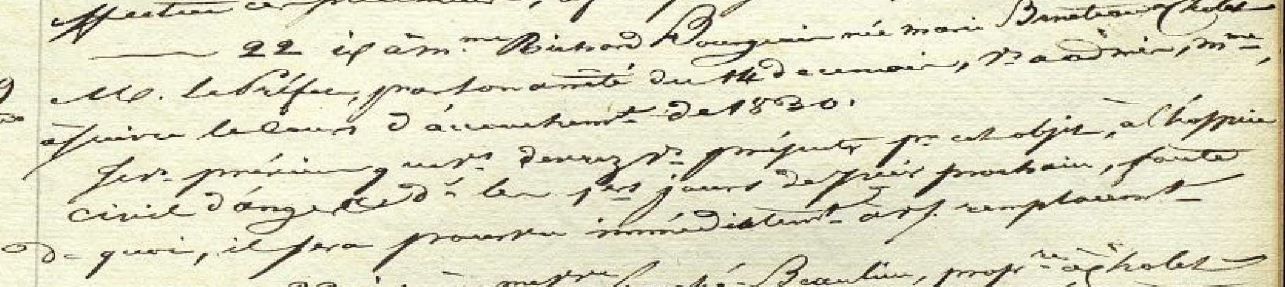 22 id à Mme Richard Bougrain née Marie Beneteau Cholet
M. le Préfet, par son arrêté du 14 de ce mois, vs a admis, Mme,
à suivre le cours d'accouchemt de 1830.
Je vs préviens que vs devrez vs présenter pr cet objet, à l'hospice
civil d'angers dès les 1ers jours de janvier prochain, faute
de quoi, il sera pourvu immédiatemt à vre remplacemt
Beaulieu, propre à Cholet